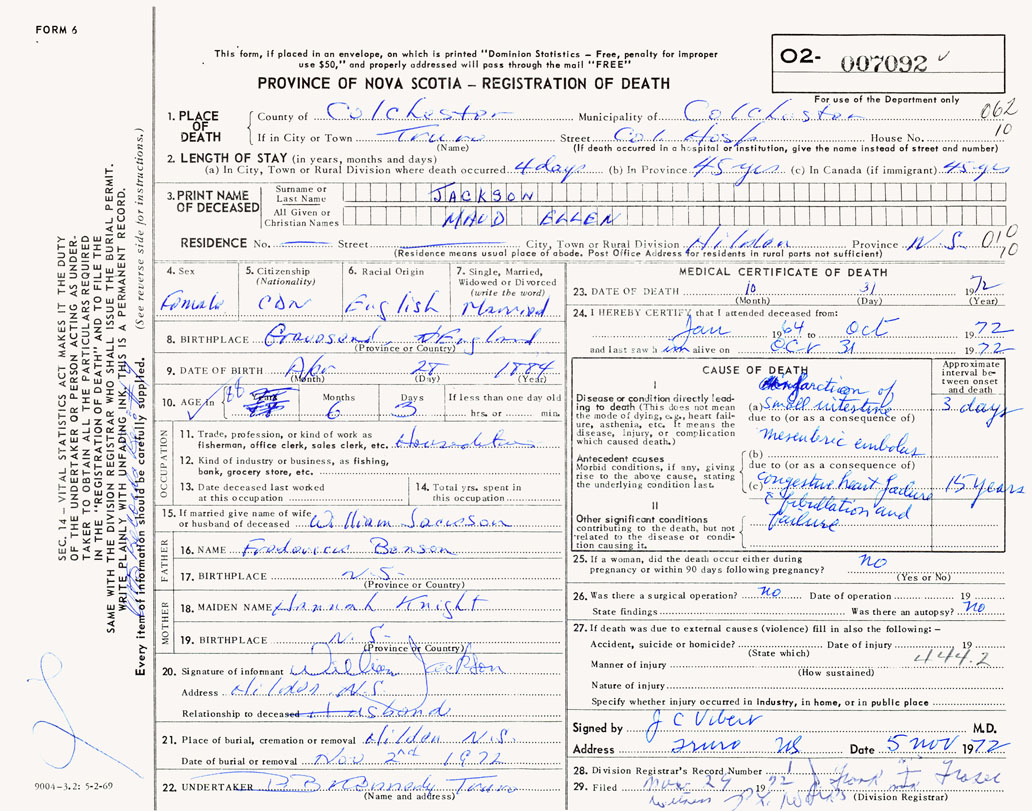 FORM 6
This form, if placed in an envelope, on which is printed "Dominion Statistics – Free, penalty for improper
use $50," and properly addressed will pass through the mail "FREE"
PROVINCE OF NOVA SCOTIA – REGISTRATION OF DEATH
O2- 007092
For use of the Department only
062
10
1. PLACE OF DEATH
County of Colchester Municipality of Colchester
If in City or Town Truro Street Col. Hosp House No.
(Name) (If death occurred in a hospital or institution, give the name instead of street and number)
2. LENGTH OF STAY (in years, months and days)
(a) In City, Town or Rural Division where death occurred 4 days (b) In Province 45 yrs (c) In Canada (if immigrant) 45 yrs
3. PRINT NAME OF DECEASED
Surname or Last Name JACKSON
All Given or Christian Names MAUD ELLEN
RESIDENCE No. Street City, Town or Rural Division Hilden Province N.S. 010
70
(Residence means usual place of abode. Post Office Address for residents in rural parts not sufficient)
4. Sex Female
5. Citizenship (Nationality) CDN
6. Racial Origin English
7. Single, Married, Widowed or Divorced (write the word) Married
8. BIRTHPLACE Gravesend England
(Province or Country)
9. DATE OF BIRTH Apr 28 1884
(Month) (Day) (Year)
10. AGE in 88 Years Months 6 Days 3 If less than one day old
hrs. or min.
OCCUPATION
11. Trade, profession, or kind of work as
fisherman, office clerk, sales clerk, etc.
12. Kind of industry or business, as fishing,
bank, grocery store, etc.
13. Date deceased last worked
at this occupation
14. Total yrs. spent in
this occupation
15. If married give name of wife
or husband of deceased William Jackson
FATHER
16. NAME Benson
17. BIRTHPLACE N.S.
(Province or Country)
MOTHER
18. MAIDEN NAME Hannah Knight
19. BIRTHPLACE N.S.
(Province or Country)
20. Signature of informant William Jackson
Address Hilden N.S.
Relationship to deceased Husband
21. Place of burial, cremation or removal Hilden N.S.
Date of burial or removal Nov. 2nd 1972
22. UNDERTAKER Kennedy Truro
(Name and address)
MEDICAL CERTIFICATE OF DEATH
23. DATE OF DEATH 10 31 1972
(Month) (Day) (Year)
24. I HEREBY CERTIFY that I attended deceased from:
Jan 1964 to Oct 1972
and last saw him alive on Oct 31 1972
CAUSE OF DEATH
Approximate interval between onset and death
I
Disease or condition directly leading to death (This does not mean the mode of dying, e.g., heart failure, asthenia, etc. It means the disease, injury, or complication which caused death.)
(a) infarction of
small intestine 3 days
due to (or as a consequence of)
mesenteric embolus
Antecedent causes
Morbid conditions, if any, giving rise to the above cause, stating the underlying condition last.
(b)
due to (or as a consequence of)
(c) congestive heart failure 15 years
II
Other significant conditions
contributing to the death, but not related to the disease or condition causing it.
fibrillation and
failure
25. If a woman, did the death occur either during
pregnancy or within 90 days following pregnancy? no
(Yes or No)
26. Was there a surgical operation? no Date of operation 19
State findings Was there an autopsy? no
27. If death was due to external causes (violence) fill in also the following: –
Accident, suicide or homicide? Date of injury 19
(State which)
444.2
Manner of injury
(How sustained)
Nature of injury
Specify whether injury occurred in industry, in home, or in public place
Signed by J C Vibert M.D.
Address Truro NS Date 5 Nov 1972
28. Division Registrar's Record Number
29. Filed 72 Frank Fraser
(Division Registrar)
SEC. 14 – VITAL STATISTICS ACT MAKES IT THE DUTY
OF THE UNDERTAKER OR PERSON ACTING AS UNDERTAKER
TO OBTAIN ALL THE PARTICULARS REQUIRED
IN THE "REGISTRATION OF DEATH" AND TO FILE THE
SAME WITH THE DIVISION REGISTRAR WHO SHALL ISSUE THE BURIAL PERMIT.
WRITE PLAINLY WITH UNFADING INK, THIS IS A PERMANENT RECORD.
Every item of information should be carefully supplied. (See reverse side for instructions.)
9004-3.2: 5-2-69